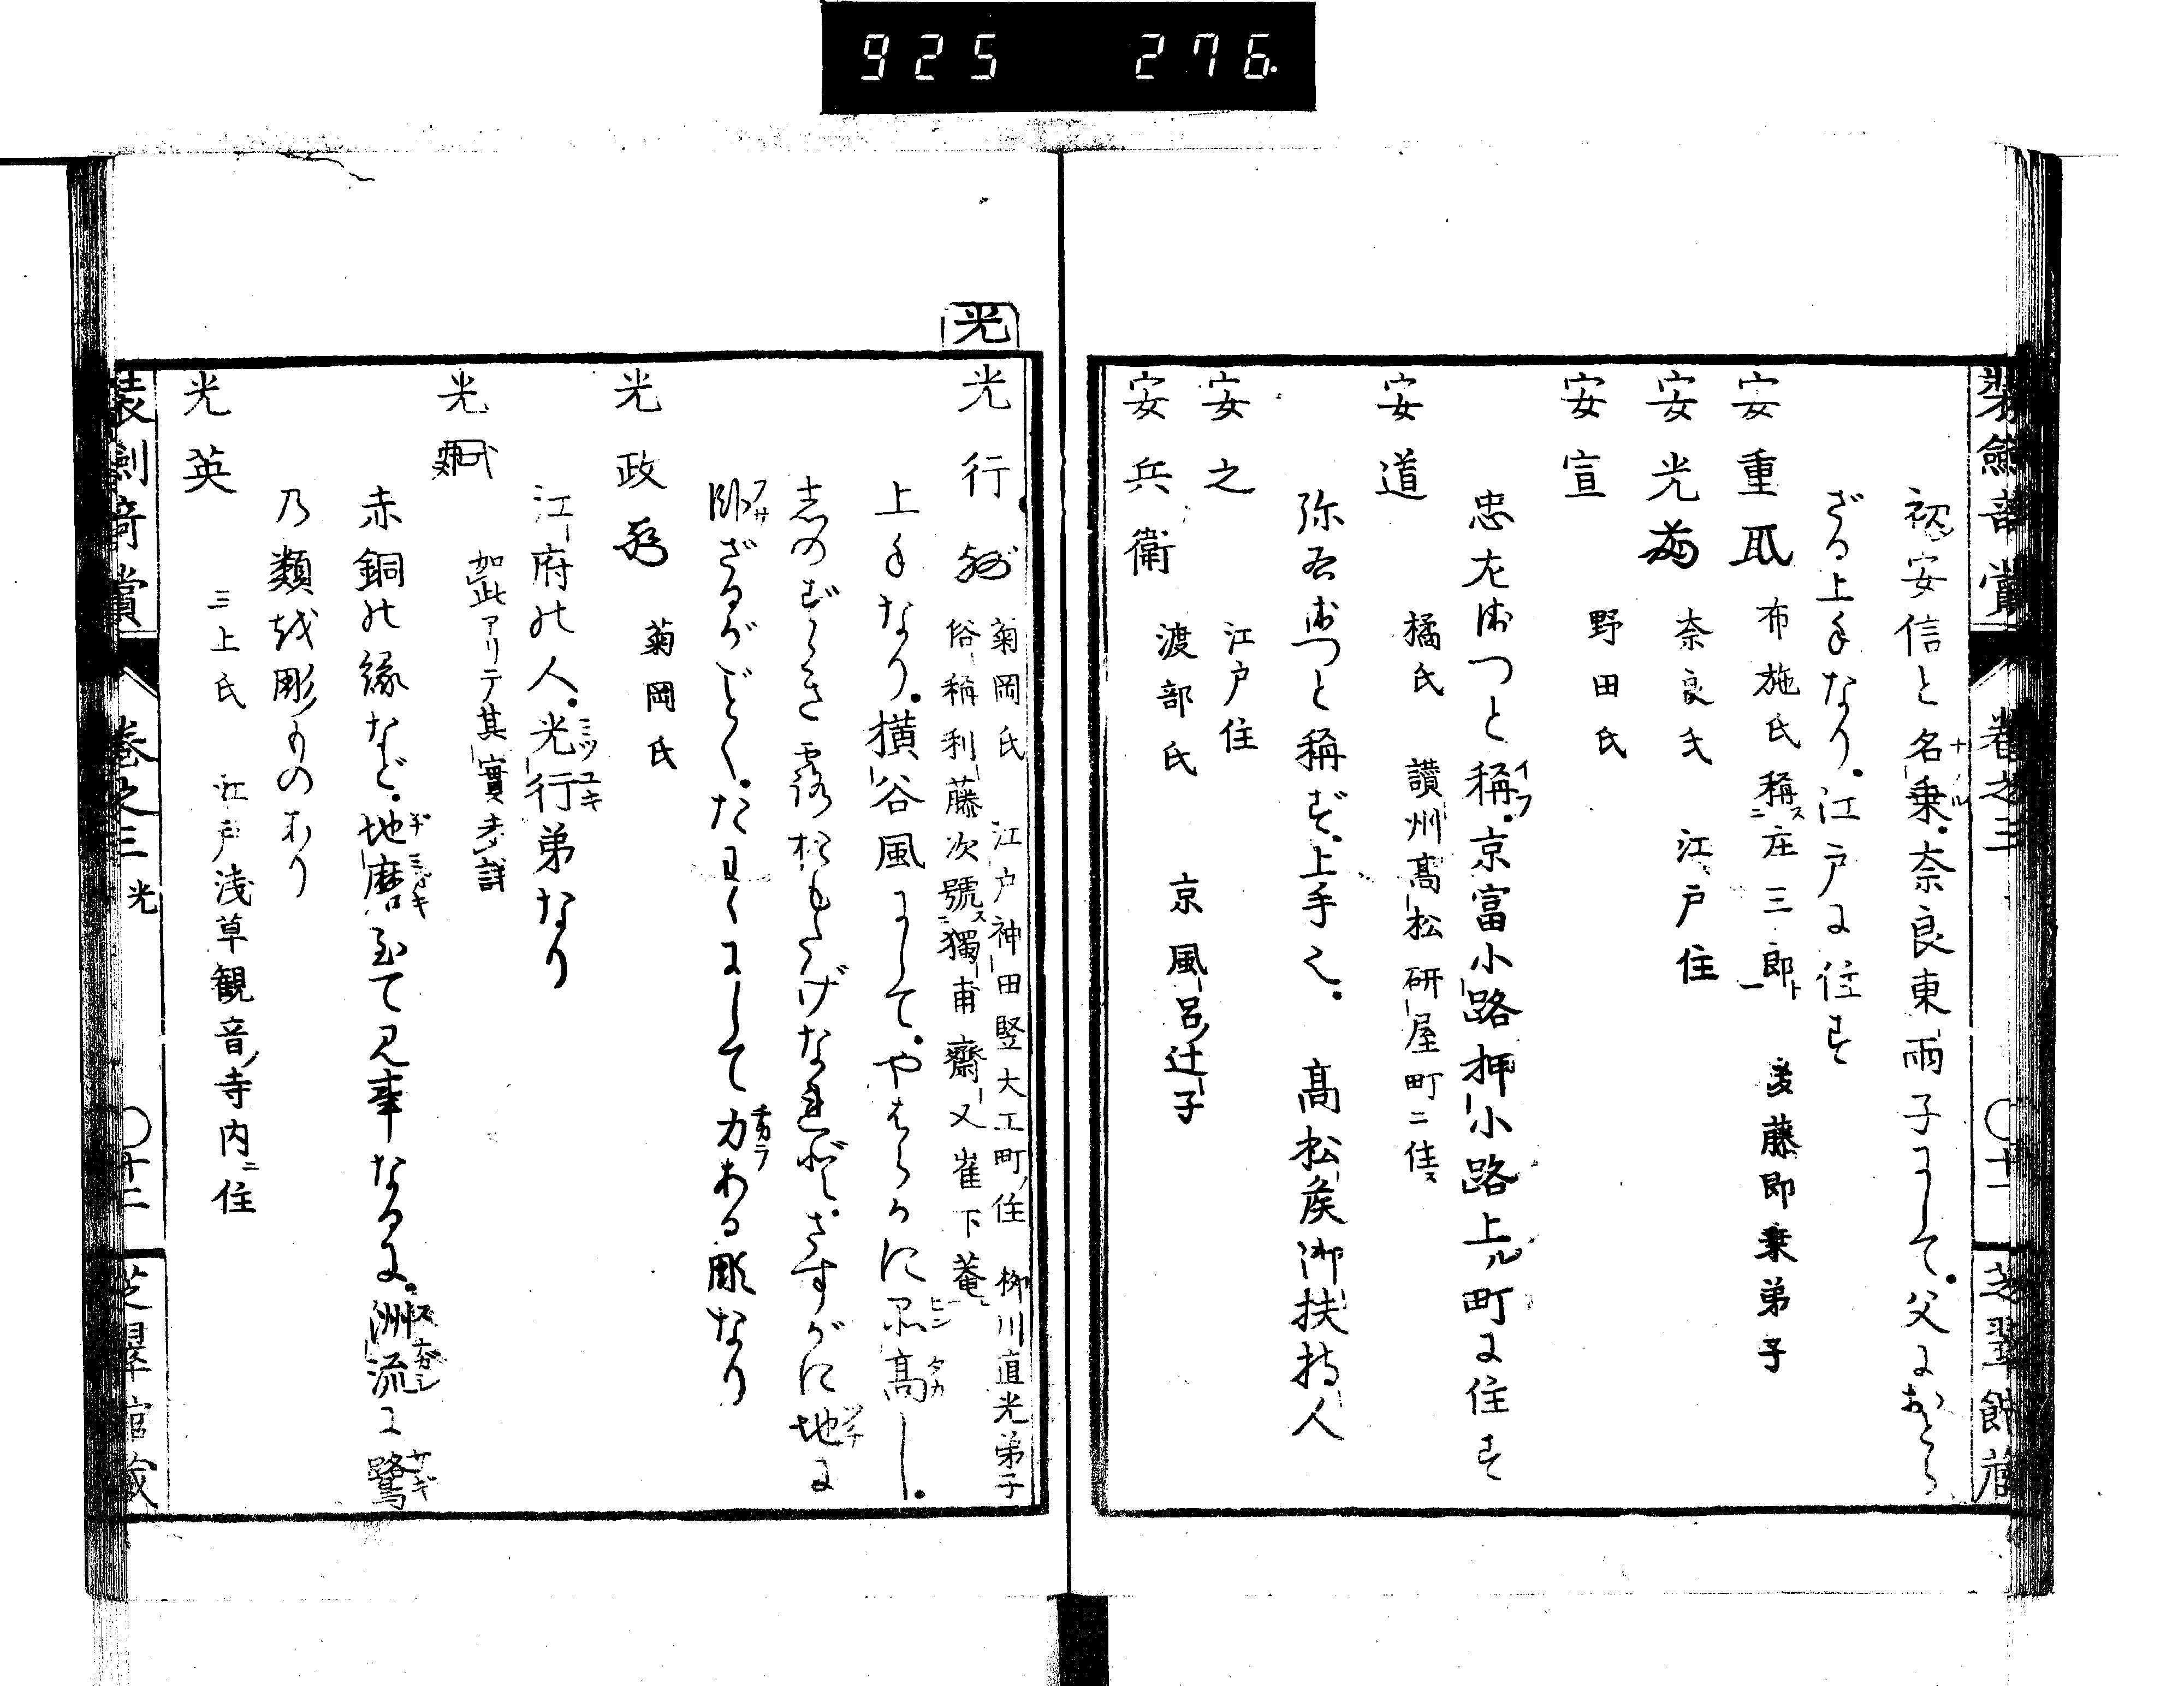 925 276
装劔竒賞 巻之三 〇十一 芝翠館蔵
初安信と名乗。奈良東雨子にして。父におとら
ざる上手なり。江戸に住す
安重 布施氏 稱庄三郎 後藤即乗弟子
安光 奈良氏 江戸住
安宣 野田氏
忠左衛つと稱。京冨小路押小路上ル町に住す
安道 橘氏 讃州髙松研屋町ニ住
弥右衛つと稱ず。上手也。 髙松矦御扶持人
安之 江戸住
安兵衛 渡部氏 京風呂ノ辻子
光
光行 菊岡氏 江戸神田竪大工町ノ住 柳川直光弟子
俗稱利藤次號獨甫齋又崔下菴
上手なり。横谷風にして。やはらかに品髙し。
志のむらさき露おもたげなれど。さすがに地に
臥ざるがごとく。たをくにして力ある彫なり
光政 菊岡氏
江府の人。光行弟なり
光 如此アリテ其實未詳
赤銅の縁など。地磨至て見事なるに。洲流に鷺
乃類を彫ものあり
光英 三上氏 江戸浅草観音ノ寺内ニ住
装劔竒賞 巻之三 光 〇十二 芝翠館蔵